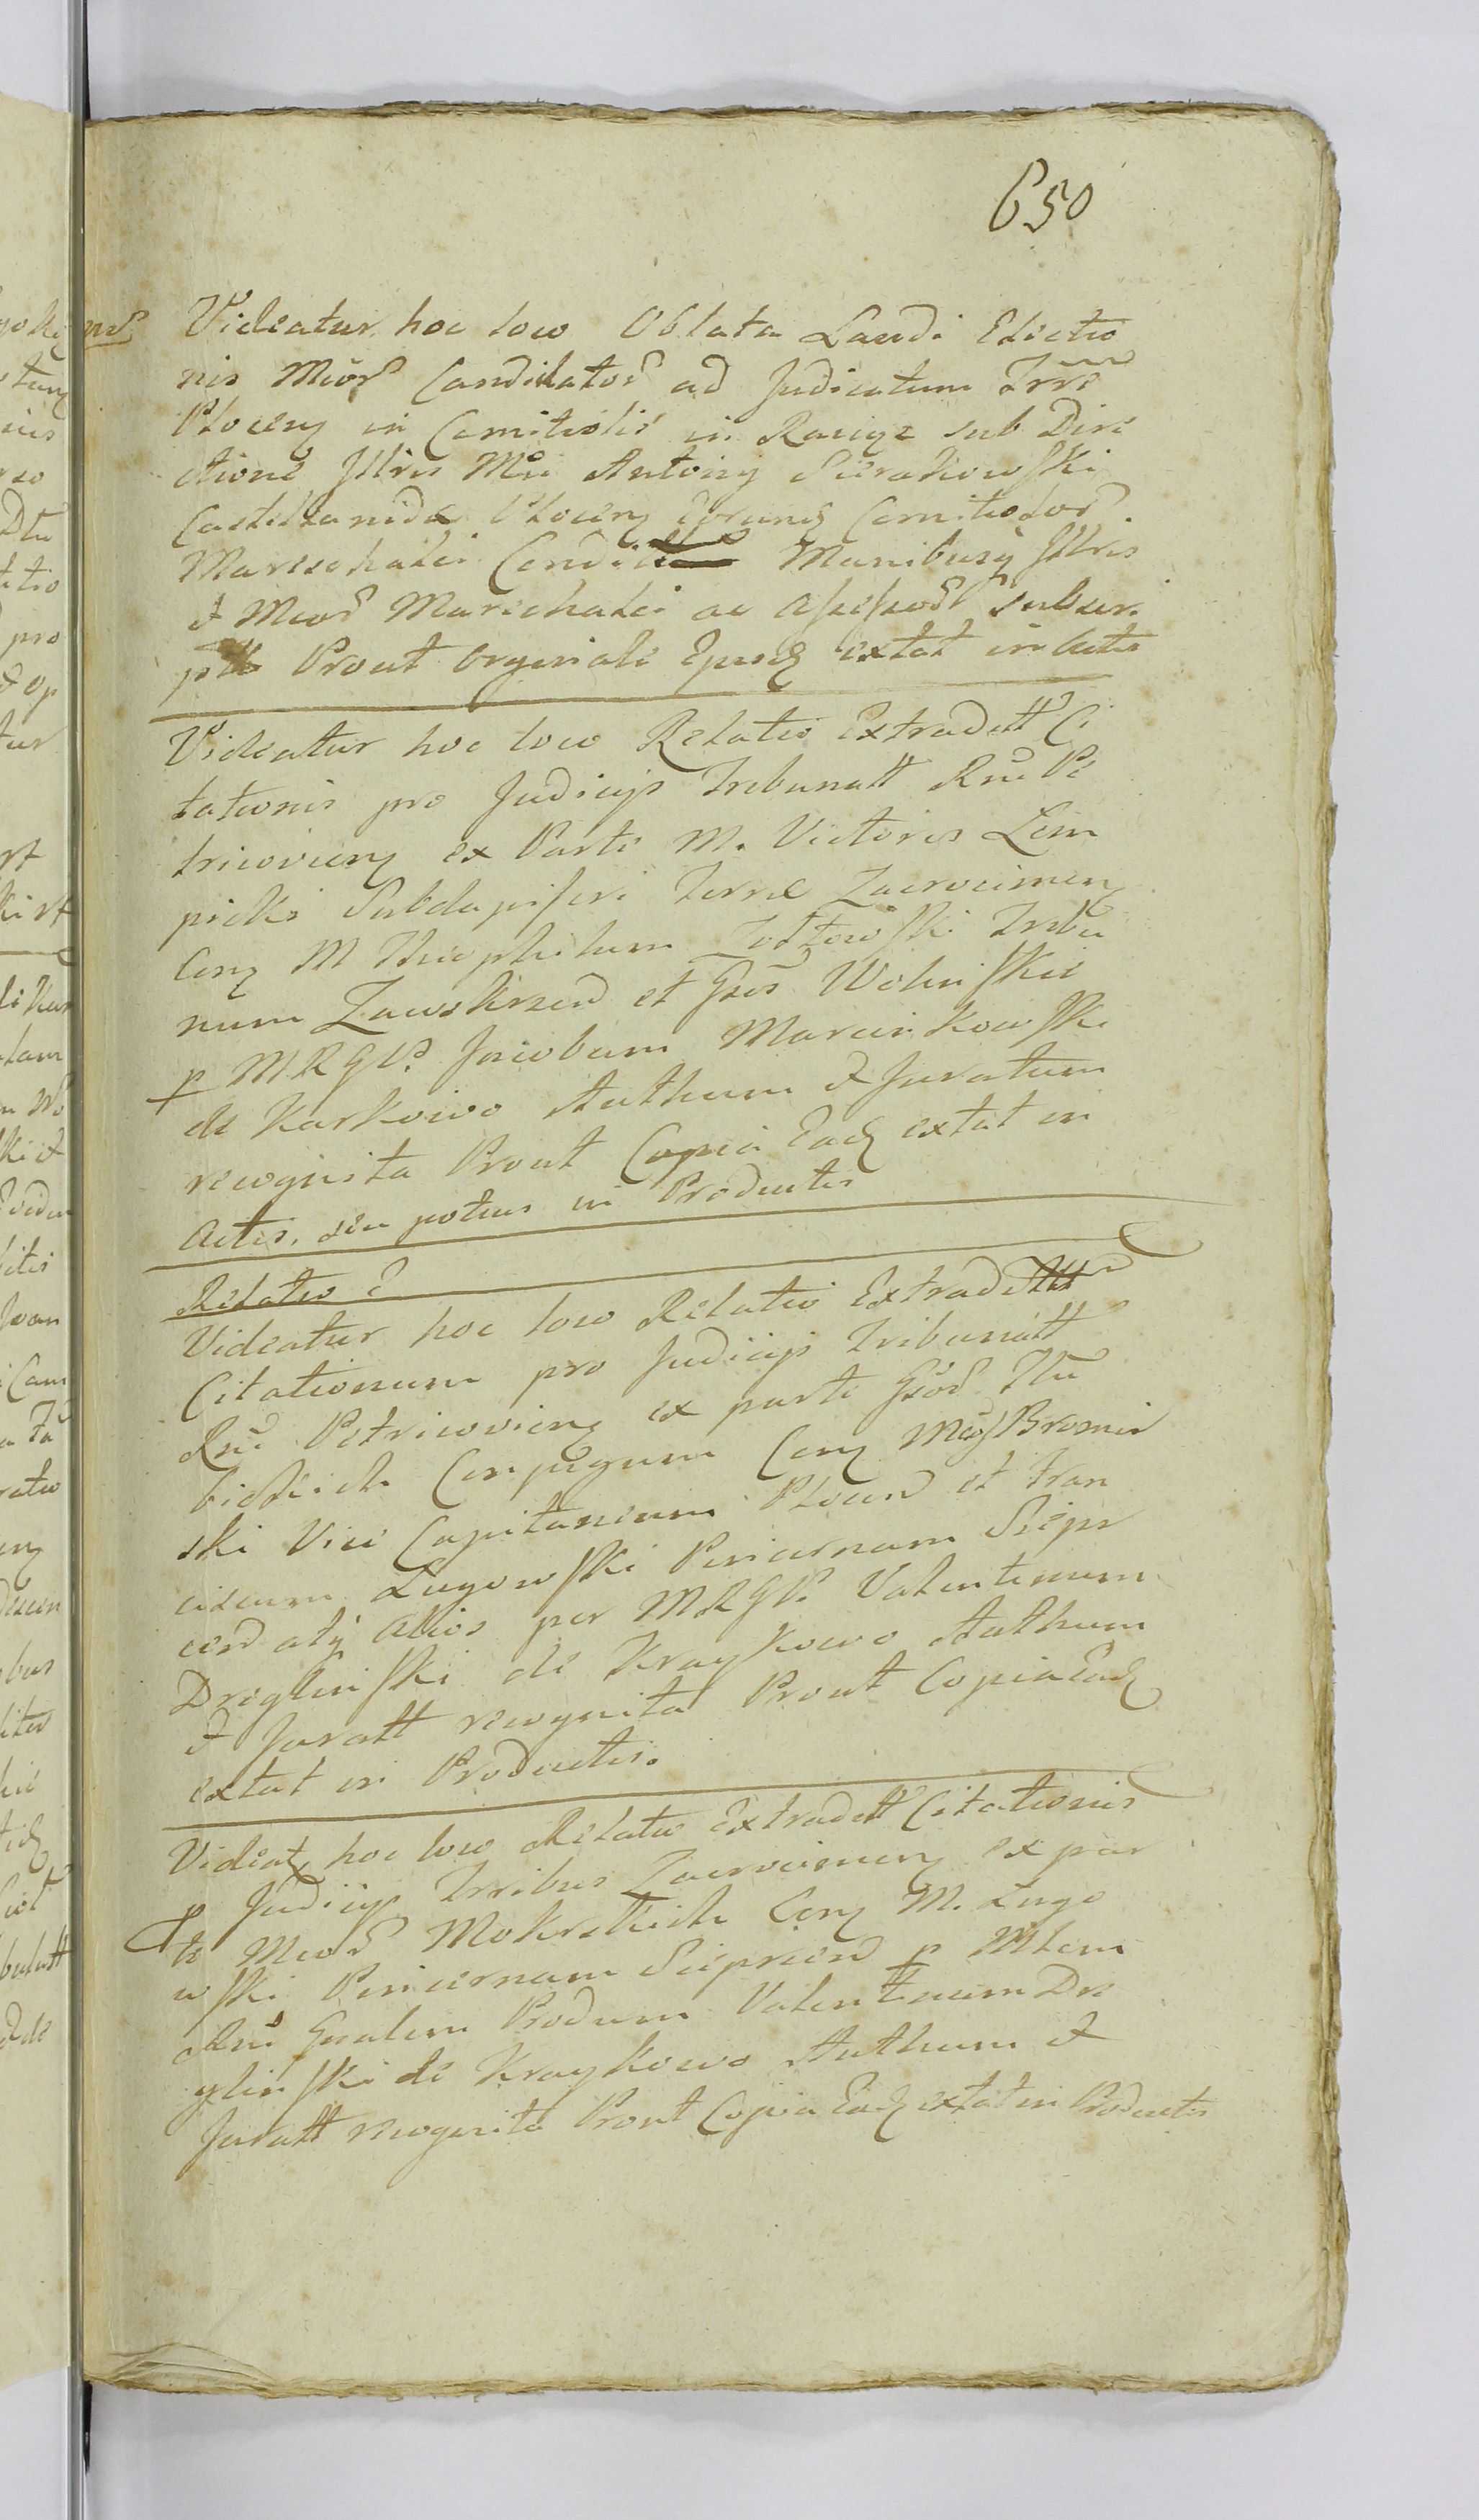 650
Videatur hoc loco Oblata Laudi Electio
nis Mcor Candidator ad Judicatum Trre
Plocen in Comitiolis in Raciąz sub Dire
ctione Jllris Mci Antonij Sierakowski
Castellanidae Plocen eorunq Comitiolor
Mareschalci Condit Manibusq Jllris
& Mcor Mareschalci ac Assessor subscri
ptt Prout Orginale Ejusq extat in Actis
Videatur hoc loco Relatio Extraditt Ci
tationis pro Judicijs Tribunatt Rni Pe
tricovien ex Parte M. Victoris Lem
picki Subdapiferi Terrae Zacrocimen
Con M Theophilum Żołtowski Tribu
num Zawskrzen et Gsos Wolinskie
p MRGP. Jacobum Marcinkowski
de Karkowo Authum & Juratum
recognita Prout Copia Eadq extat in
Actis, seu potius in Productis
Relatio E
Videatur hoc loco Relatio Extraditt
Citationum pro Judicijs Tribunatt
Rni Petricovien ex parte Gsor
Conjugum Con Mcos Bromir
ski Vice Capitaneum Plocen et Fran
ciscum Lugowski Pincernam Sierpr
cen atq Alios per MRGP. Valentinum
Dreglinski de Kraykowo Authum
& Juratt recognita Prout Copia Eadq
extat in Productis.
Videat hoc loco Relatio Extraditt Citationis
p Judicijs Trribus Zacrocimen ex par
te Mcor Mokrskich Con M. Lugo
wski Pincernam Sieprcen p Mlem
Rni Gnalem Produm Valentinum Dre
glinski de Kraykowo Authum &
Juratt recognita Prout Copia Eadq extat in Productis